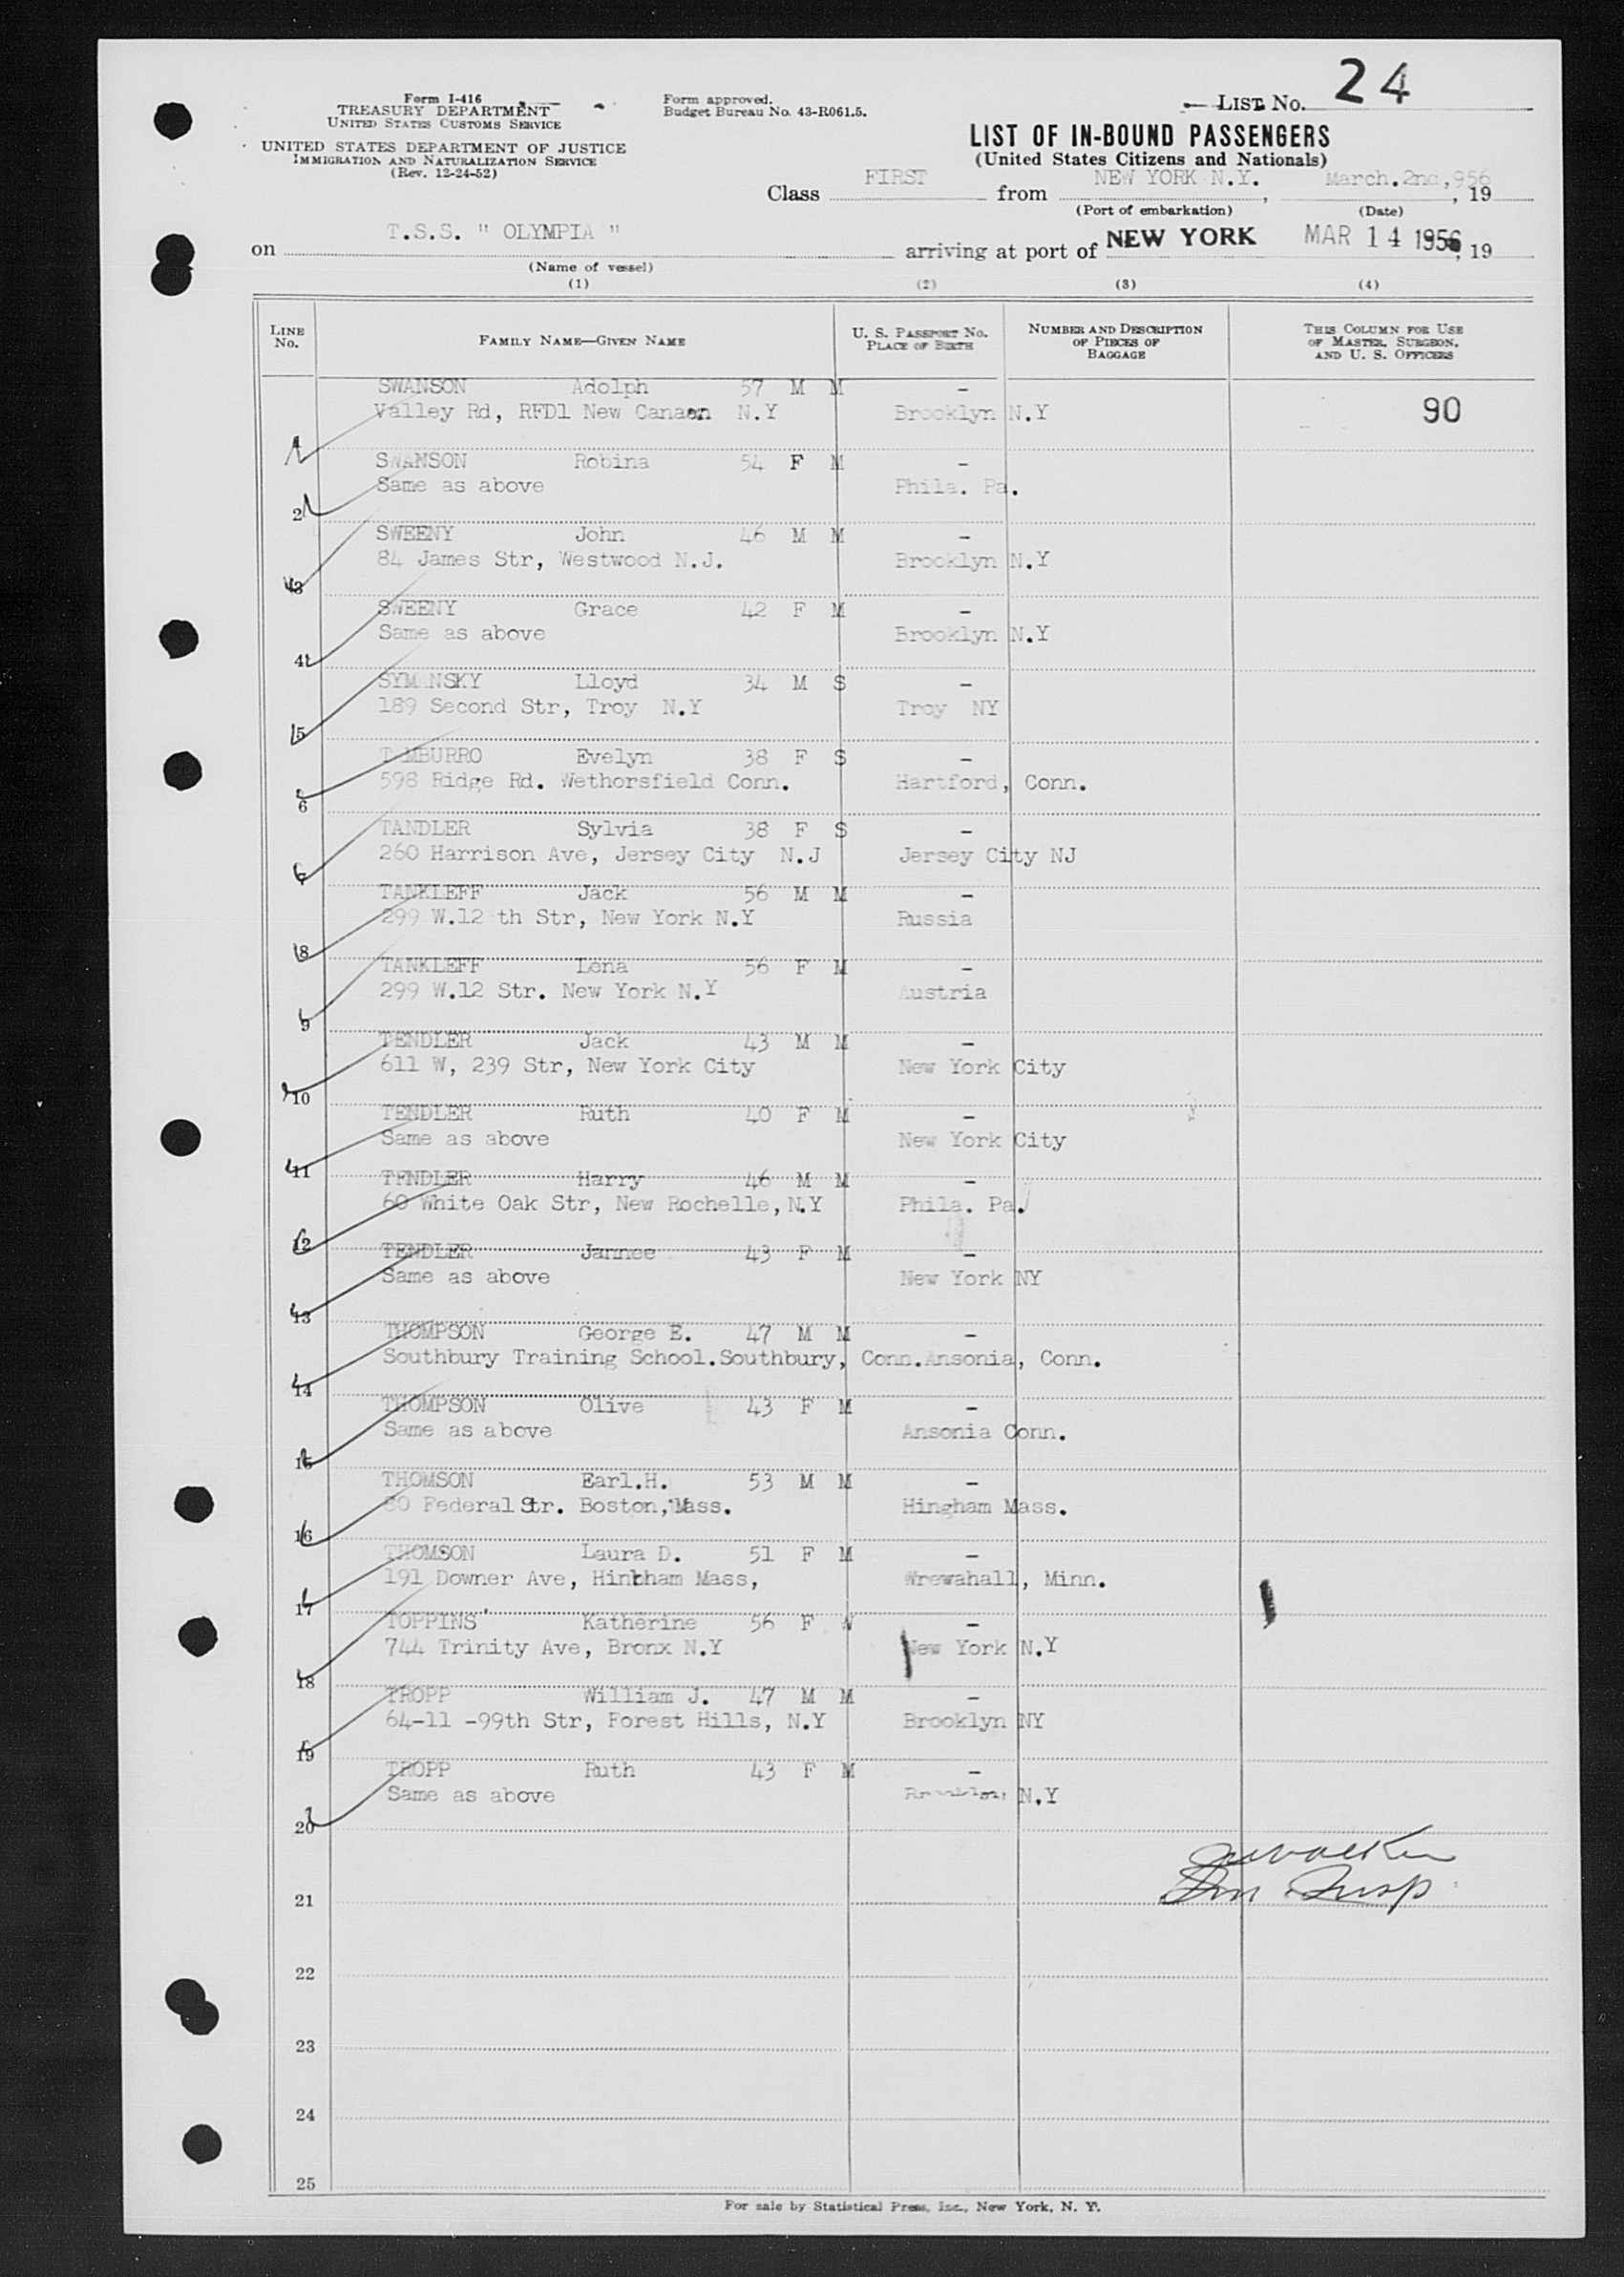 24
Form I-416
TREASURY DEPARTMENT
UNITED STATES CUSTOMS SERVICE
UNITED STATES DEPARTMENT OF JUSTICE
IMMIGRATION AND NATURALIZATION SERVICE
(Rev. 12-24-52)
Form approved.
Budget Bureau No. 43-R061.5.
LIST No.
LIST OF IN-BOUND PASSENGERS
(United States Citizens and Nationals)
Class FIRST from NEW YORK N.Y., March.2nd,956, 19
(Port of embarkation) (Date)
on T.S.S. " OLYMPIA " arriving at port of NEW YORK MAR 14 1956, 19
(Name of vessel)
(1) (2) (3) (4)
LINE No. FAMILY NAME—GIVEN NAME U. S. PASSPORT No. PLACE OF BIRTH NUMBER AND DESCRIPTION OF PIECES OF BAGGAGE THIS COLUMN FOR USE OF MASTER, SURGEON, AND U. S. OFFICERS
SWANSON Adolph 57 M M -
Valley Rd, RFD1 New Canaan N.Y Brooklyn N.Y 90
1
SWANSON Robina 54 F M -
Same as above Phila. Pa.
2
SWEENY John 46 M M -
84 James Str, Westwood N.J. Brooklyn N.Y
3
SWEENY Grace 42 F M -
Same as above Brooklyn N.Y
4
SYM NSKY Lloyd 34 M S -
189 Second Str, Troy N.Y Troy NY
5
TAMBURRO Evelyn 38 F S -
598 Ridge Rd. Wethorsfield Conn. Hartford, Conn.
6
TANDLER Sylvia 38 F S -
260 Harrison Ave, Jersey City N.J Jersey City NJ
7
TANKLEFF Jack 56 M M -
299 W.12 th Str, New York N.Y Russia
8
TANKLEFF Lena 56 F M -
299 W.12 Str. New York N.Y Austria
9
TENDLER Jack 43 M M -
611 W, 239 Str, New York City New York City
10
TENDLER Ruth 40 F M -
Same as above New York City
11
TENDLER Harry 46 M M -
60 White Oak Str, New Rochelle, N.Y Phila. Pa.
12
TENDLER Jannee 43 F M -
Same as above New York NY
13
THOMPSON George E. 47 M M -
Southbury Training School.Southbury, Conn.Ansonia, Conn.
14
THOMPSON Olive 43 F M -
Same as above Ansonia Conn.
15
THOMSON Earl.H. 53 M M -
80 Federal Str. Boston, Mass. Hingham Mass.
16
THOMSON Laura D. 51 F M -
191 Downer Ave, Hinhham Mass, Wrewahall, Minn.
17
TOPPINS Katherine 56 F W -
744 Trinity Ave, Bronx N.Y New York N.Y
18
TROPP William J. 47 M M -
64-11 -99th Str, Forest Hills, N.Y Brooklyn NY
19
TROPP Ruth 43 F M -
Same as above Brooklyn N.Y
20
Imm Insp
21
22
23
24
25
For sale by Statistical Press, Inc., New York, N. Y.